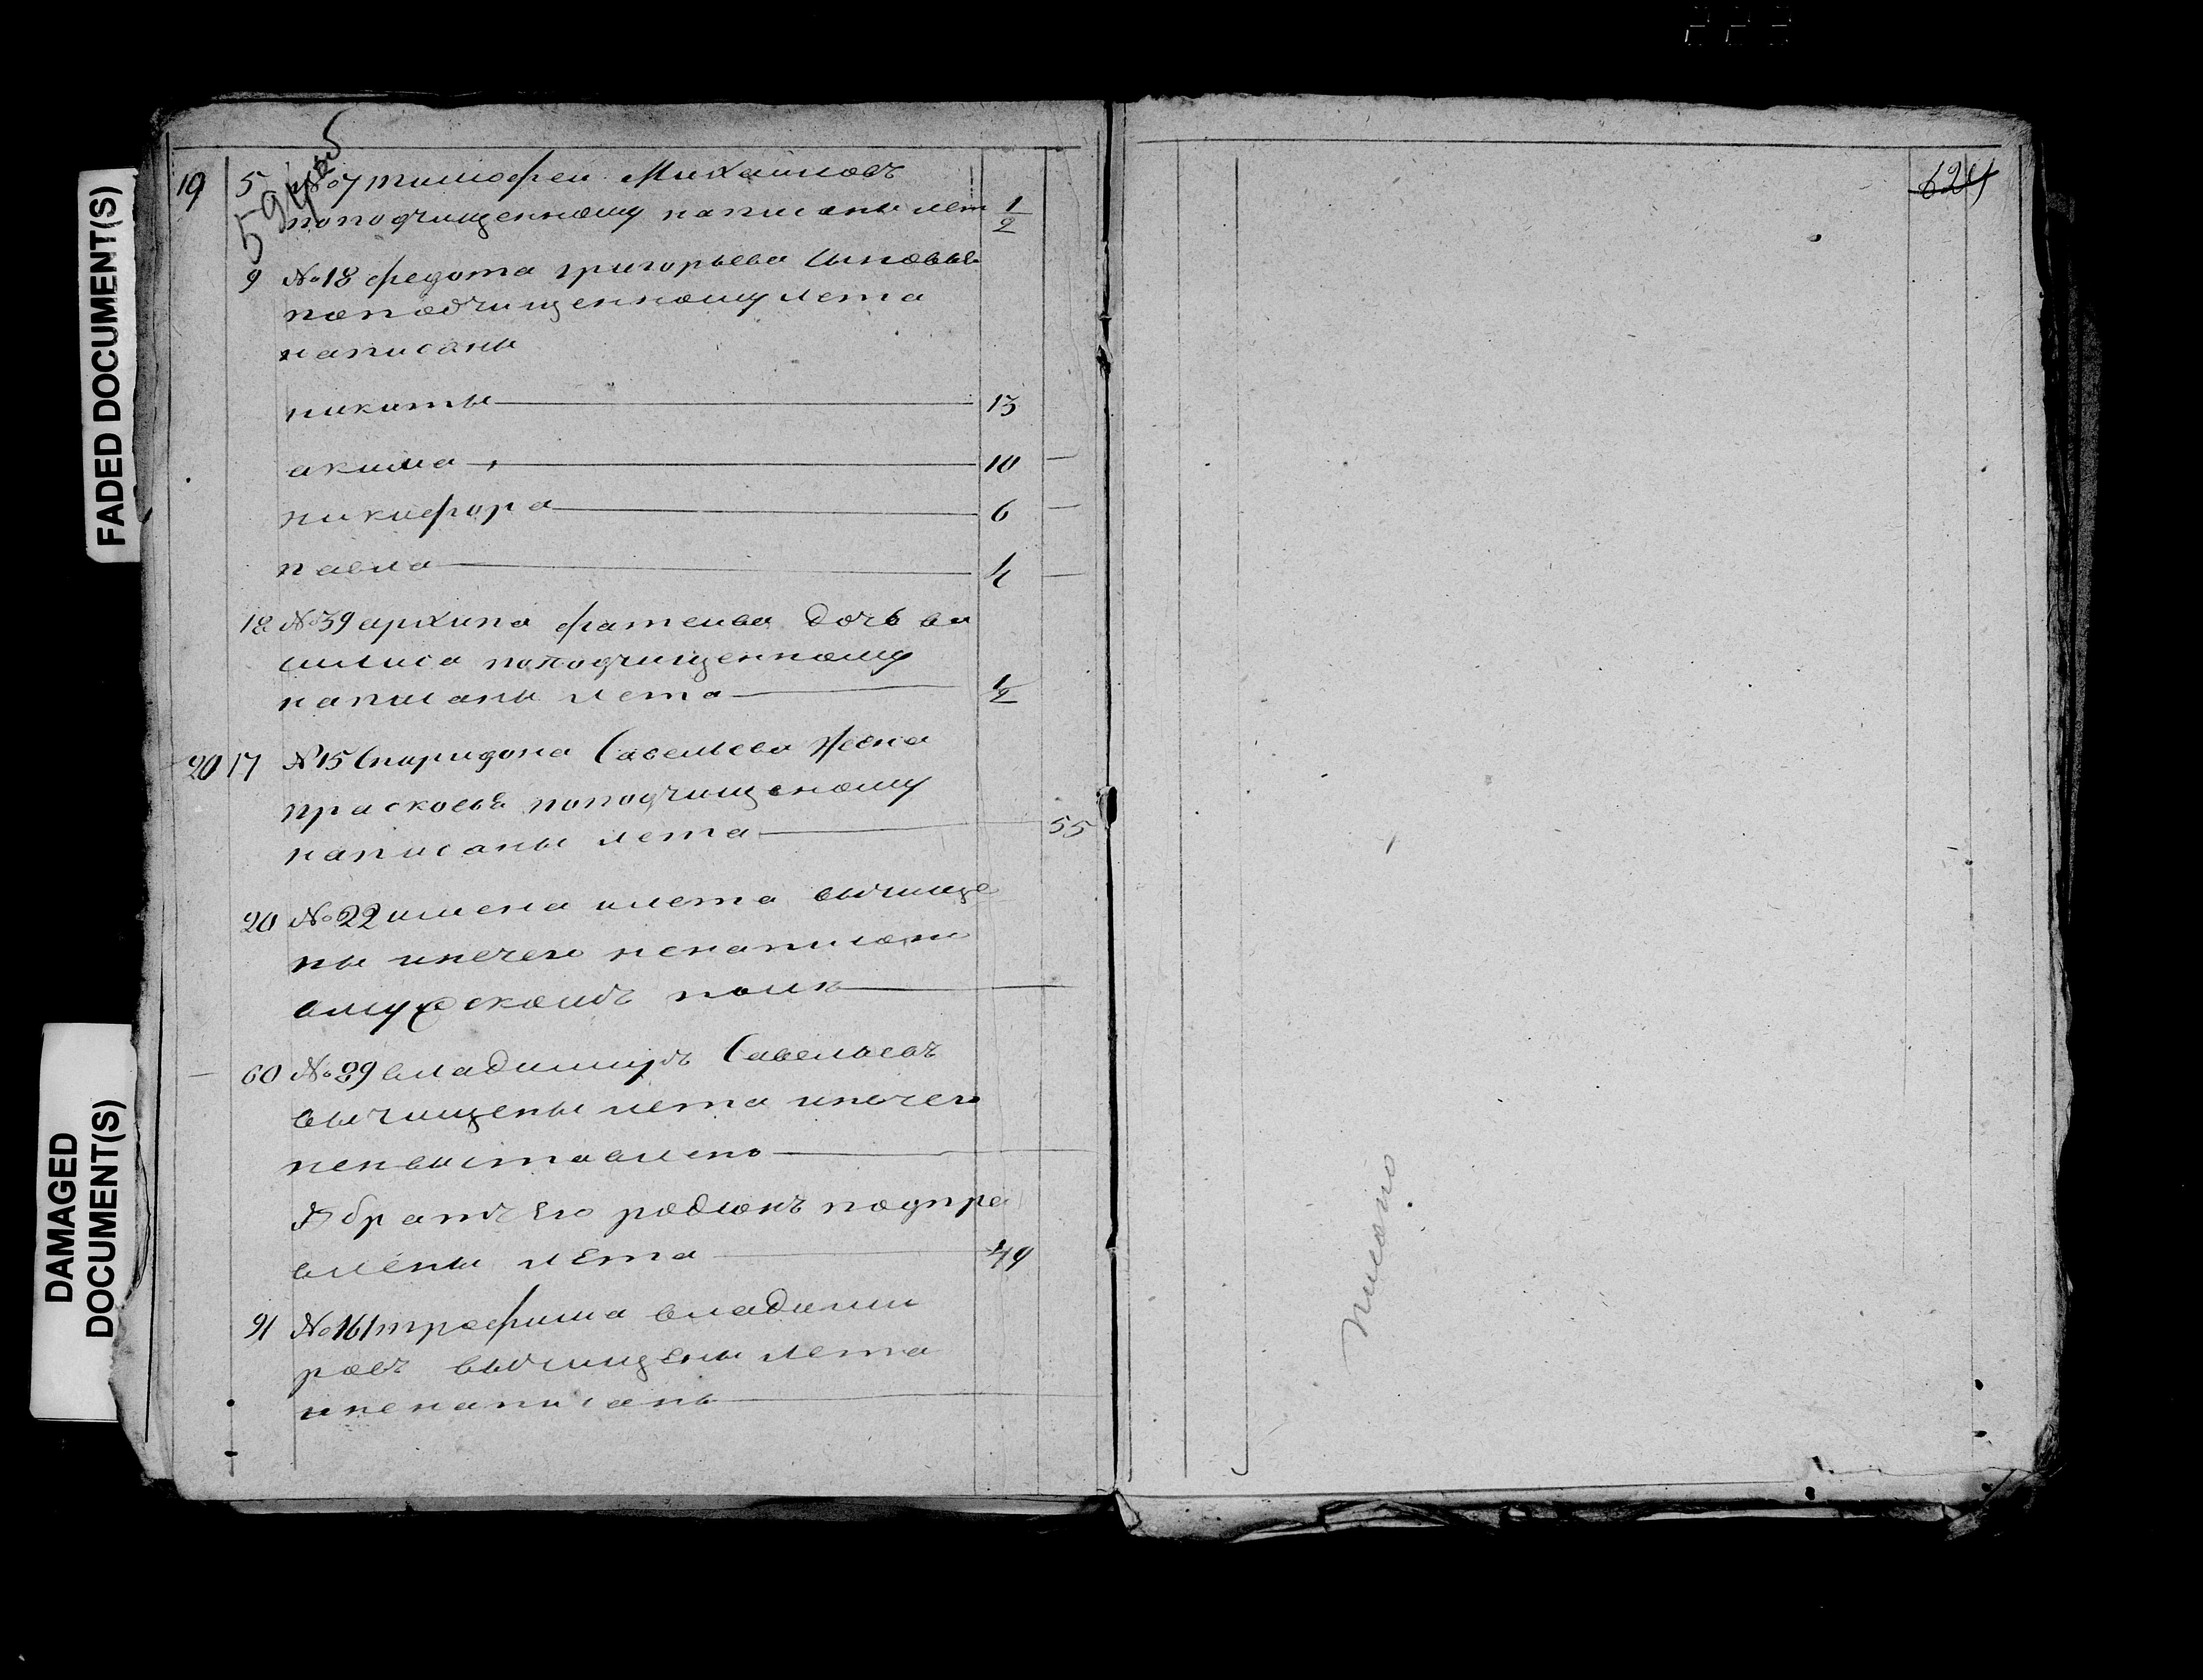 19 5 №7 тимофеи Михаиловъ
поподчищенному написаны лет 1/2
9 №18 федота григорьева сыновья
поподчищенному лета
написаны
никиты 13
акима 10 —
никифора 6 —
павла 4 —
18 №39 архипа фатеива дочь ва
силиса поподчищенному
написаны лета 1/2
20 17 №15 Спиридона Савельева жена
прасковья поподчищеному
написаны лета 55
20 №22 имена илета вычище
ны иничего ненаписано
вмужскомъ поли
60 №29 владимиръ Савельевъ
вычищены лета иничего
невыставлено
брат его родионъ подпра
влены лета 49
91 №161 трофима владими
ровъ вычищены лета
иненаписаны
624
FADED DOCUMENT(S)
DAMAGED
DOCUMENT(S)